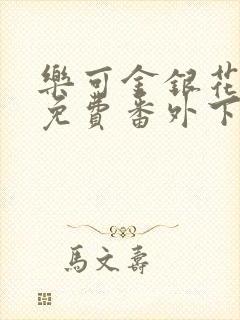 樂可金銀花
免費番外下
馬文壽